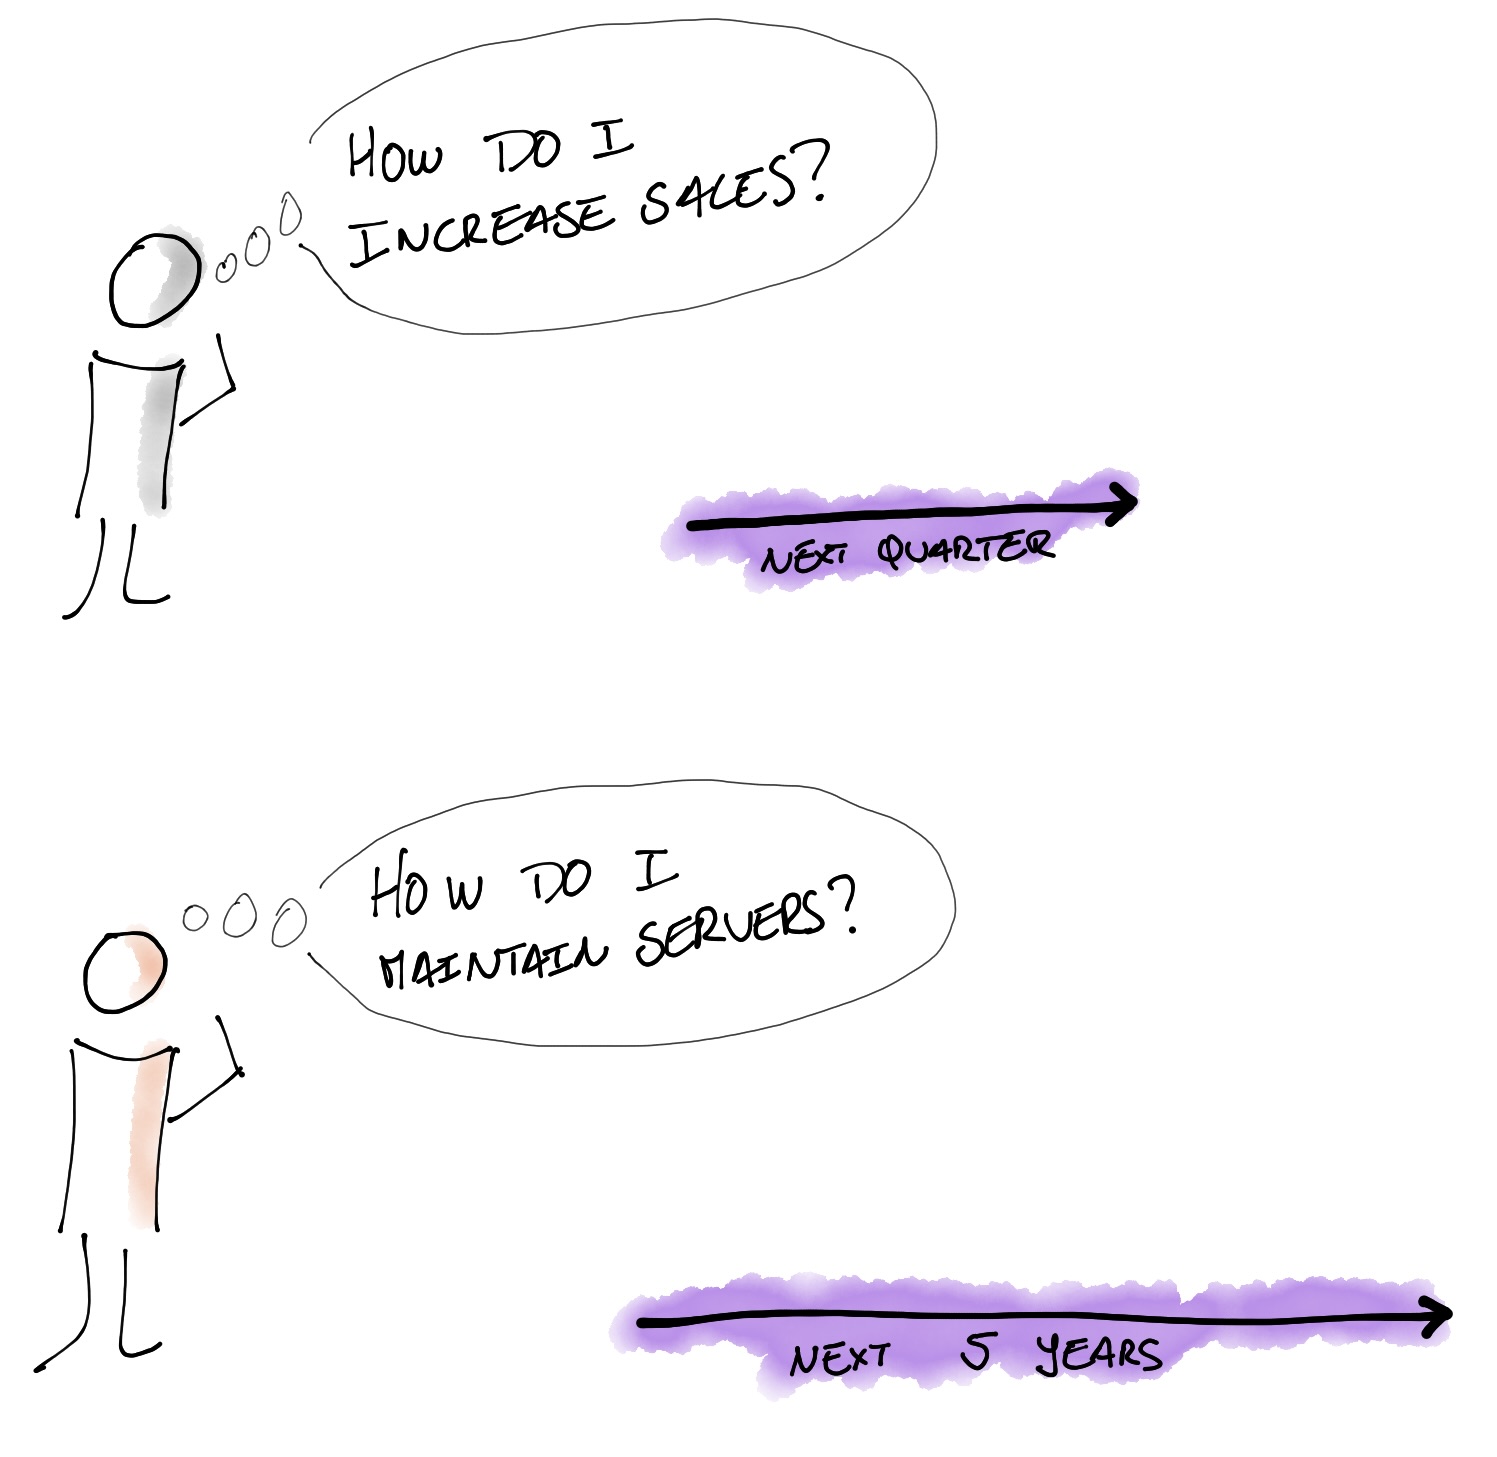 HOW DO I
INCREASE SALES?
NEXT QUARTER
HOW DO I
MAINTAIN SERVERS?
NEXT 5 YEARS